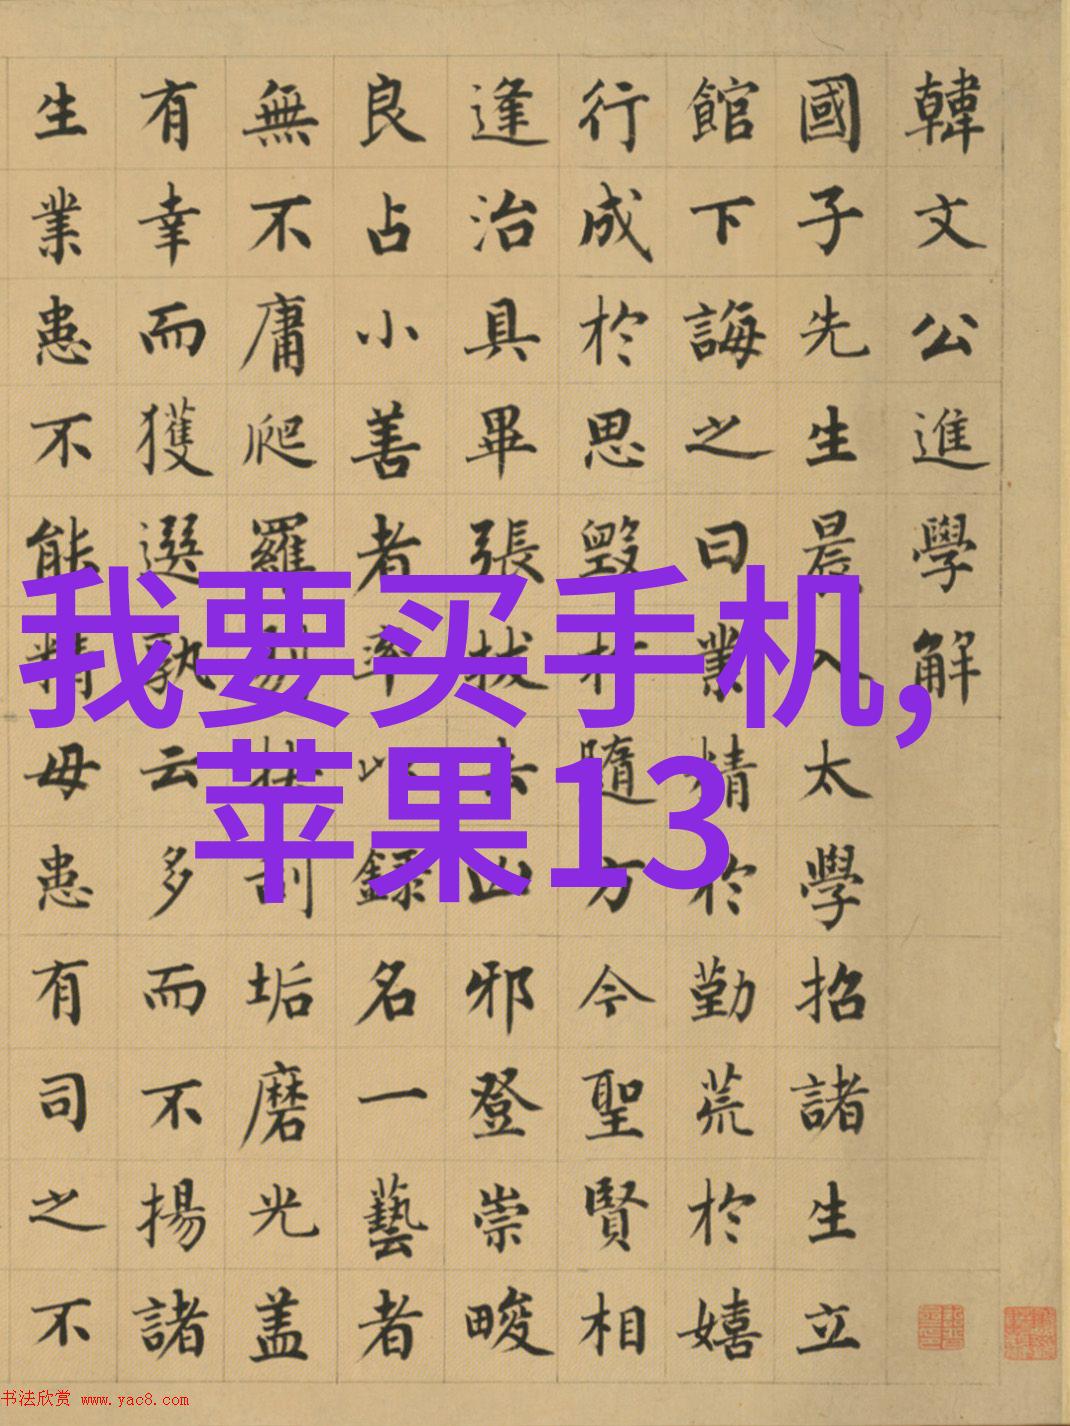 韓文公進學解
國子先生晨入太學招諸生立
館下誨之曰業精於勤荒於嬉
行成於思毀於隨方今聖賢相
逢治具畢張拔去凶邪登崇畯
良占小善者率以錄名一藝者
無不庸爬羅剔抉刮垢磨光盖
有幸而獲選孰云多而不揚諸
生業患不能精母患有司之不
我要买手机,
苹果13
书法欣赏 www.yac8.com